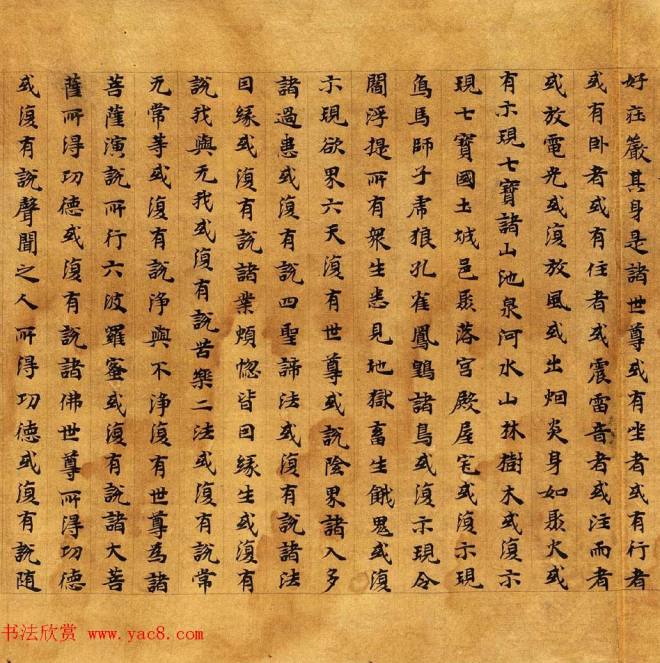 好莊嚴其身是諸世尊或有坐者或有行者
或有卧者或有住者或震雷音者或注雨者
或放電光或復放風或出烟炎身如聚火或
有示現七寶諸山池泉河水山林樹木或復示
現七寶國土城邑聚落宮殿屋宅或復示現
烏馬師子虎狼孔雀鳳鸎諸鳥或復示現令
閻浮提所有衆生悉見地獄畜生餓鬼或復
示現欲界六天復有世尊或說陰界諸入多
諸過患或復有說四聖諦法或復有說諸法
因緣或復有說諸業煩惱皆因緣生或復有
說我與无我或復有說苦樂二法或復有說常
无常等或復有說淨與不淨復有世尊為諸
菩薩演說所行六波羅蜜或復有說諸大菩
薩所得功德或復有說諸佛世尊所得功德
或復有說聲聞之人所得功德或復有說隨
书法欣赏 www.yac8.com